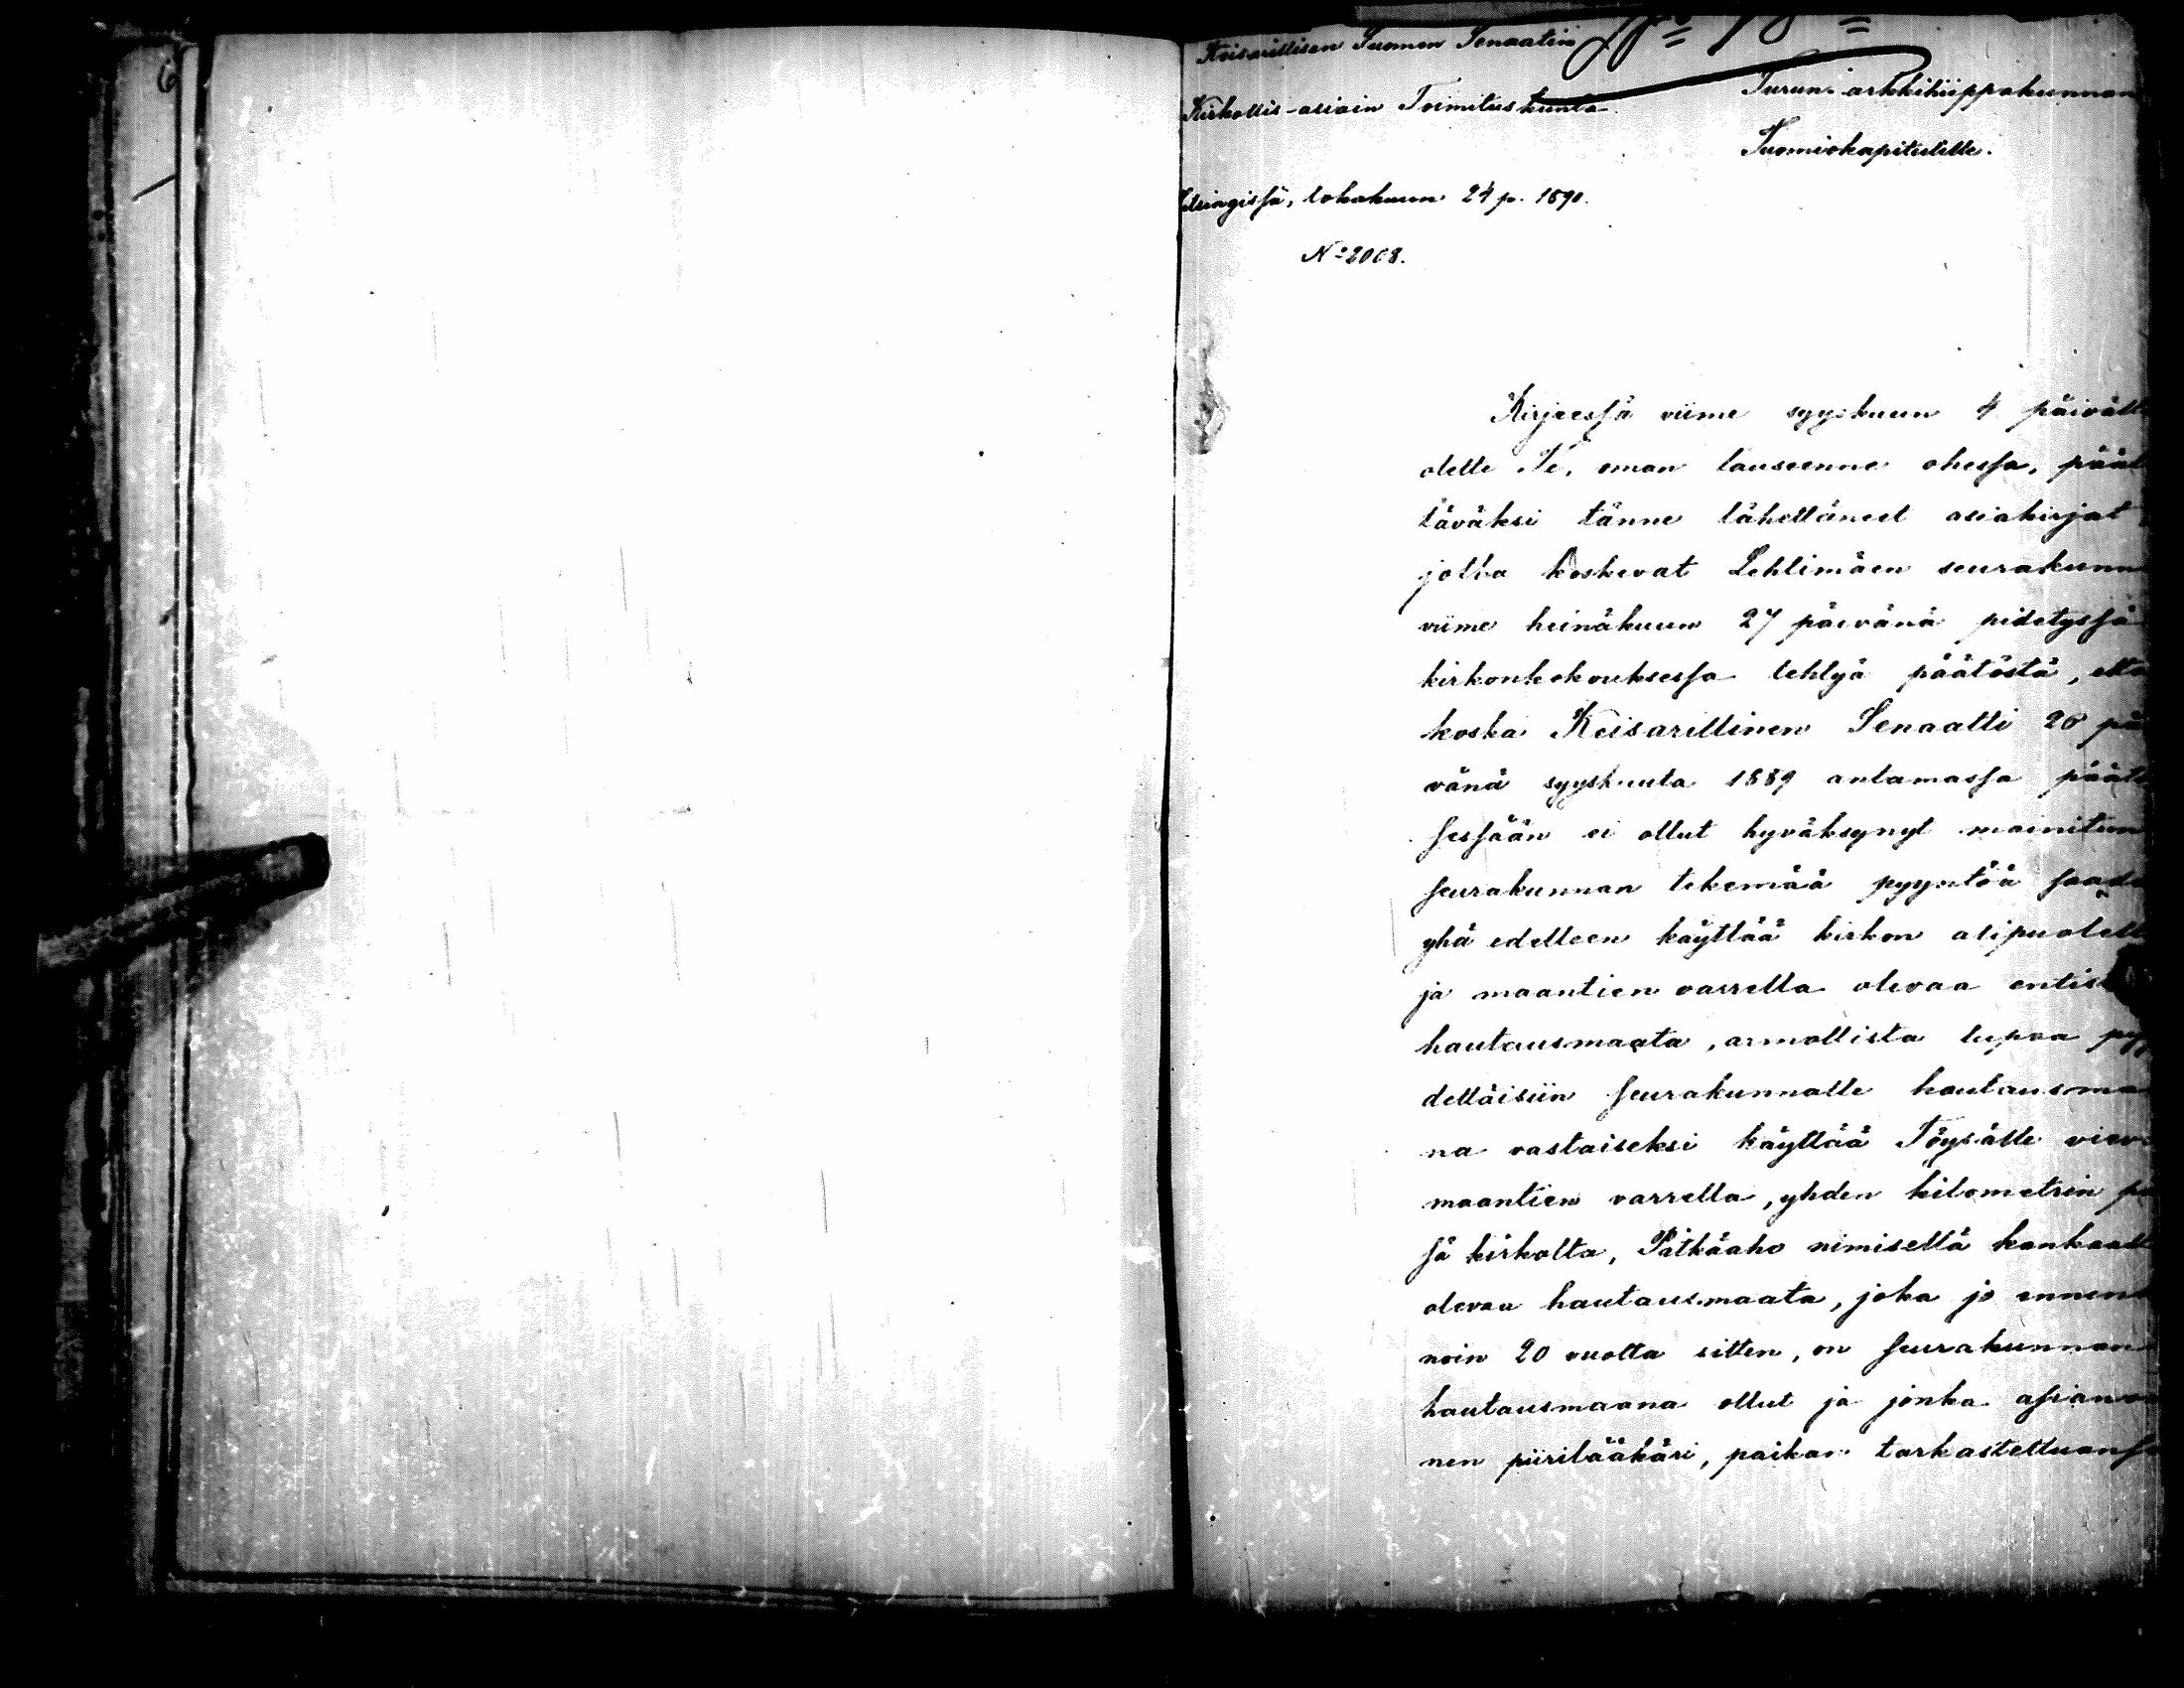 6
Keisarillisen Suomen Senaatin
Kirkollis-asiain Toimituskunta
Turun arkkihiippakunnan
Tuomiokapitulille.
elsingissä, lokakuun 24 p. 1890.
No 2008.
Kirjeessä viime syyskuun 4 päivält
olette Te, oman lauseenne ohessa, päät
täväksi tänne lähettäneet asiakirjat
jotka koskevat Lehtimäen seurakunn
viime heinäkuun 27 päivänä pidetyssä
kirkonkokouksessa tehtyä päätöstä, että
koska Keisarillinen Senaatti 20 päi
vänä syyskuuta 1889 antamassa päätö
sessään ei ollut hyväksynyt mainitun
seurakunnan tekemää pyyntöä saada
yhä edelleen käyttää kirkon alipuolell
ja maantien varrella olevaa entis
hautausmaata, armollista lupaa pyy
dettäisiin seurakunnalle hautausmaa
na vastaiseksi käyttää Töysälle viev
maantien varrella, yhden kilometrin pä
sä kirkolta, Pätkäaho nimisellä kankaall
olevaa hautausmaata, joka jo ennen
noin 20 vuotta sitten, on seurakunnan
hautausmaana ollut ja jonka asiano
nen piirilääkäri, paikan tarkastettuansa